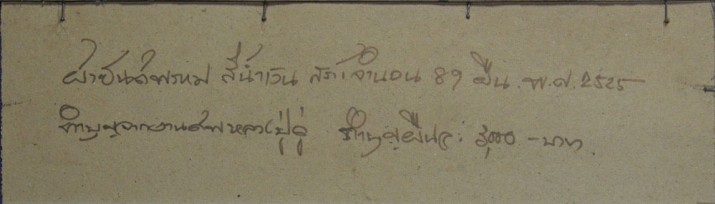 ผ้ายันต์พรหม สีน้ำเงิน สร้างจำนวน 89 ผืน พ.ศ. 2525
ทำบุญจากงานศพหลวงปู่ดู่ ทำบุญผืนละ 3,000 - บาท